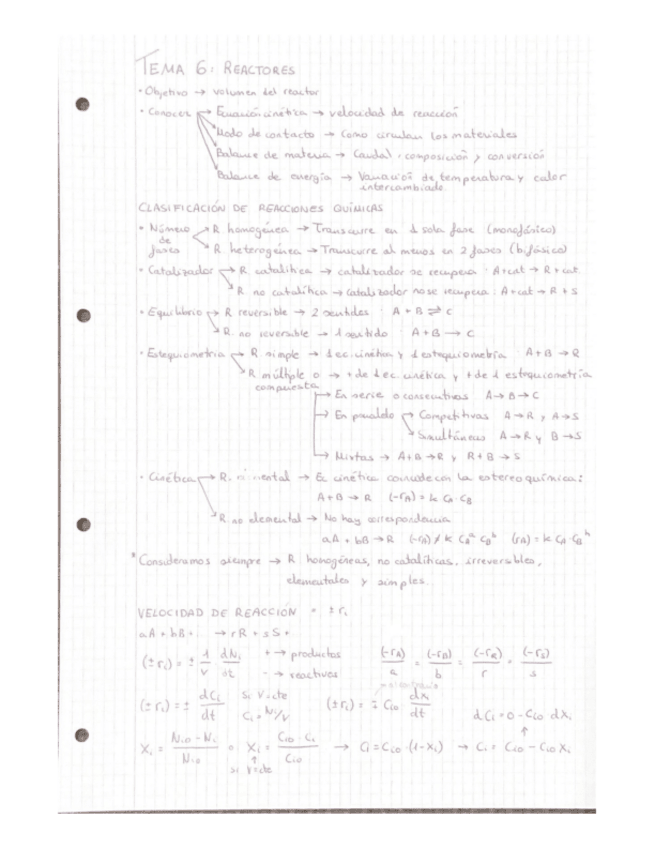 TEMA 6: REACTORES
• Objetivo → volumen del reactor
• Conocer → Ecuación cinética → velocidad de reacción
→ Modo de contacto → Como circulan los materiales
→ Balance de materia → Caudal, composición y conversión
→ Balance de energía → Variación de temperatura y calor
intercambiado.
CLASIFICACIÓN DE REACCIONES QUÍMICAS
• Número de fases → R. homogénea → Transcurre en 1 sola fase (monofásico)
→ R. heterogénea → Transcurre al menos en 2 fases (bifásico)
• Catalizador → R. catalítica → catalizador se recupera : A+cat → R+cat
→ R. no catalítica → catalizador no se recupera : A+cat → R+S
• Equilibrio → R. reversible → 2 sentidos : A+B ⇌ C
→ R. no reversible → 1 sentido : A+B → C
• Estequiometria → R. simple → 1 ec. cinética y 1 estequiometría A+B → R
→ R. múltiple o compuesta → + de 1 ec. cinética y + de 1 estequiometría
→ En serie o consecutivas A→B→C
→ En paralelo → Competitivas A→R y A→S
→ Simultáneas A→R y B→S
→ Mixtas → A+B→R y R+B→S
• Cinética → R. elemental → Ec cinética coincide con la estereoquímica:
A+B → R (-rA) = k CA·CB
→ R. no elemental → No hay correspondencia
aA + bB → R (-rA) ≠ k CA^a CB^b (rA) = k CA·CB^n
* Consideramos siempre → R. homogéneas, no catalíticas, irreversibles,
elementales y simples.
VELOCIDAD DE REACCIÓN = ± ri
aA + bB + .. → rR + sS +
(±ri) = ± 1/V dNi/dt + → productos - → reactivos (-rA)/a = (-rB)/b = (-rR)/r = (-rS)/s
(±ri) = ± dCi/dt si V=cte Ci = Ni/V (±ri) = ± Cio dx/dt dCi = 0 - Cio dXi
Xi = (Nio - Ni)/Nio o Xi = (Cio - Ci)/Cio → Ci = Cio·(1-Xi) → Ci = Cio - Cio Xi
si V=cte